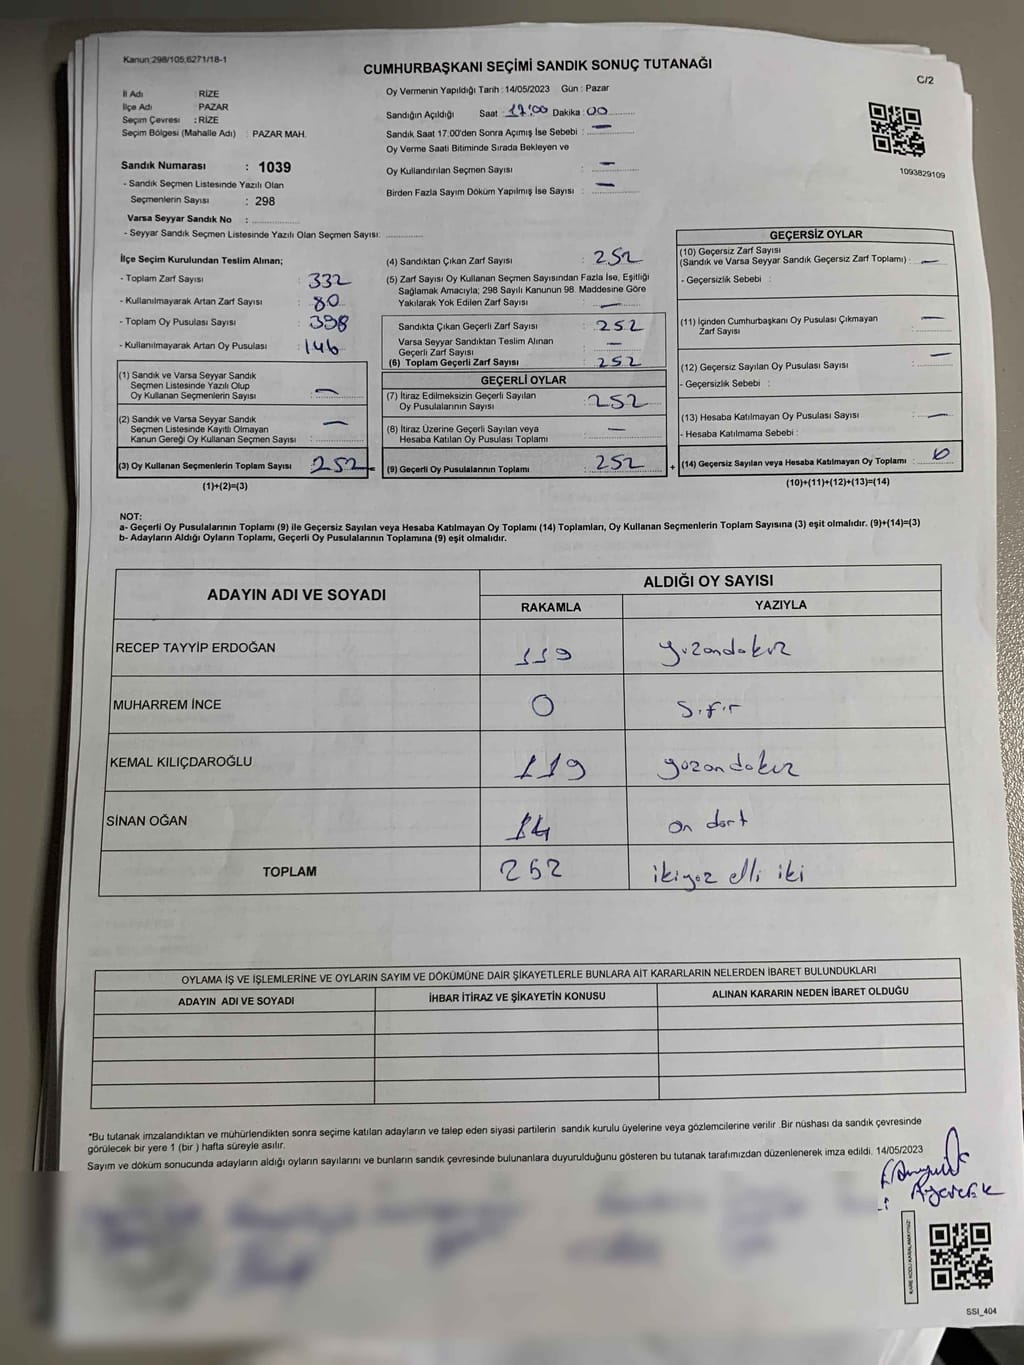 Kanun:298/105;6271/18-1
CUMHURBAŞKANI SEÇİMİ SANDIK SONUÇ TUTANAĞI
C/2
İl Adı : RİZE
İlçe Adı : PAZAR
Seçim Çevresi : RİZE
Seçim Bölgesi (Mahalle Adı) : PAZAR MAH.
Oy Vermenin Yapıldığı Tarih : 14/05/2023 Gün : Pazar
Sandığın Açıldığı Saat : 17:00 Dakika : 00
Sandık Saat 17:00'den Sonra Açımış İse Sebebi : —
Oy Verme Saati Bitiminde Sırada Bekleyen ve
Oy Kullandırılan Seçmen Sayısı : —
Birden Fazla Sayım Döküm Yapılmış İse Sayısı : —
1093829109
Sandık Numarası : 1039
- Sandık Seçmen Listesinde Yazılı Olan
Seçmenlerin Sayısı : 298
Varsa Seyyar Sandık No : ..............
- Seyyar Sandık Seçmen Listesinde Yazılı Olan Seçmen Sayısı: ..............
İlçe Seçim Kurulundan Teslim Alınan;
- Toplam Zarf Sayısı : 332
- Kullanılmayarak Artan Zarf Sayısı : 80
- Toplam Oy Pusulası Sayısı : 398
- Kullanılmayarak Artan Oy Pusulası : 146
(1) Sandık ve Varsa Seyyar Sandık
Seçmen Listesinde Yazılı Olup
Oy Kullanan Seçmenlerin Sayısı : —
(2) Sandık ve Varsa Seyyar Sandık
Seçmen Listesinde Kayıtlı Olmayan
Kanun Gereği Oy Kullanan Seçmen Sayısı : —
(3) Oy Kullanan Seçmenlerin Toplam Sayısı : 252
(1)+(2)=(3)
(4) Sandıktan Çıkan Zarf Sayısı : 252
(5) Zarf Sayısı Oy Kullanan Seçmen Sayısından Fazla İse, Eşitliği
Sağlamak Amacıyla; 298 Sayılı Kanunun 98. Maddesine Göre
Yakılarak Yok Edilen Zarf Sayısı : —
Sandıkta Çıkan Geçerli Zarf Sayısı : 252
Varsa Seyyar Sandıktan Teslim Alınan
Geçerli Zarf Sayısı : —
(6) Toplam Geçerli Zarf Sayısı : 252
GEÇERLİ OYLAR
(7) İtiraz Edilmeksizin Geçerli Sayılan
Oy Pusulalarının Sayısı : 252
(8) İtiraz Üzerine Geçerli Sayılan veya
Hesaba Katılan Oy Pusulası Toplamı : —
(9) Geçerli Oy Pusulalarının Toplamı : 252
+
GEÇERSİZ OYLAR
(10) Geçersiz Zarf Sayısı
(Sandık ve Varsa Seyyar Sandık Geçersiz Zarf Toplamı) : —
- Geçersizlik Sebebi :
(11) İçinden Cumhurbaşkanı Oy Pusulası Çıkmayan
Zarf Sayısı : —
(12) Geçersiz Sayılan Oy Pusulası Sayısı : —
- Geçersizlik Sebebi :
(13) Hesaba Katılmayan Oy Pusulası Sayısı : —
- Hesaba Katılmama Sebebi :
(14) Geçersiz Sayılan veya Hesaba Katılmayan Oy Toplamı :
(10)+(11)+(12)+(13)=(14)
NOT:
a- Geçerli Oy Pusulalarının Toplamı (9) ile Geçersiz Sayılan veya Hesaba Katılmayan Oy Toplamı (14) Toplamları, Oy Kullanan Seçmenlerin Toplam Sayısına (3) eşit olmalıdır. (9)+(14)=(3)
b- Adayların Aldığı Oyların Toplamı, Geçerli Oy Pusulalarının Toplamına (9) eşit olmalıdır.
ADAYIN ADI VE SOYADI
ALDIĞI OY SAYISI
RAKAMLA YAZIYLA
RECEP TAYYİP ERDOĞAN 119 yüzondokuz
MUHARREM İNCE 0 Sıfır
KEMAL KILIÇDAROĞLU 119 yüzondokuz
SİNAN OĞAN 14 on dört
TOPLAM 252 ikiyüz elli iki
OYLAMA İŞ VE İŞLEMLERİNE VE OYLARIN SAYIM VE DÖKÜMÜNE DAİR ŞİKAYETLERLE BUNLARA AİT KARARLARIN NELERDEN İBARET BULUNDUKLARI
ADAYIN ADI VE SOYADI İHBAR İTİRAZ VE ŞİKAYETİN KONUSU ALINAN KARARIN NEDEN İBARET OLDUĞU
*Bu tutanak imzalandıktan ve mühürlendikten sonra seçime katılan adayların ve talep eden siyasi partilerin sandık kurulu üyelerine veya gözlemcilerine verilir .Bir nüshası da sandık çevresinde
görülecek bir yere 1 (bir ) hafta süreyle asılır.
Sayım ve döküm sonucunda adayların aldığı oyların sayılarını ve bunların sandık çevresinde bulunanlara duyurulduğunu gösteren bu tutanak tarafımızdan düzenlenerek imza edildi. 14/05/2023
KARE KODU KARALAMAYINIZ!
SSI_404